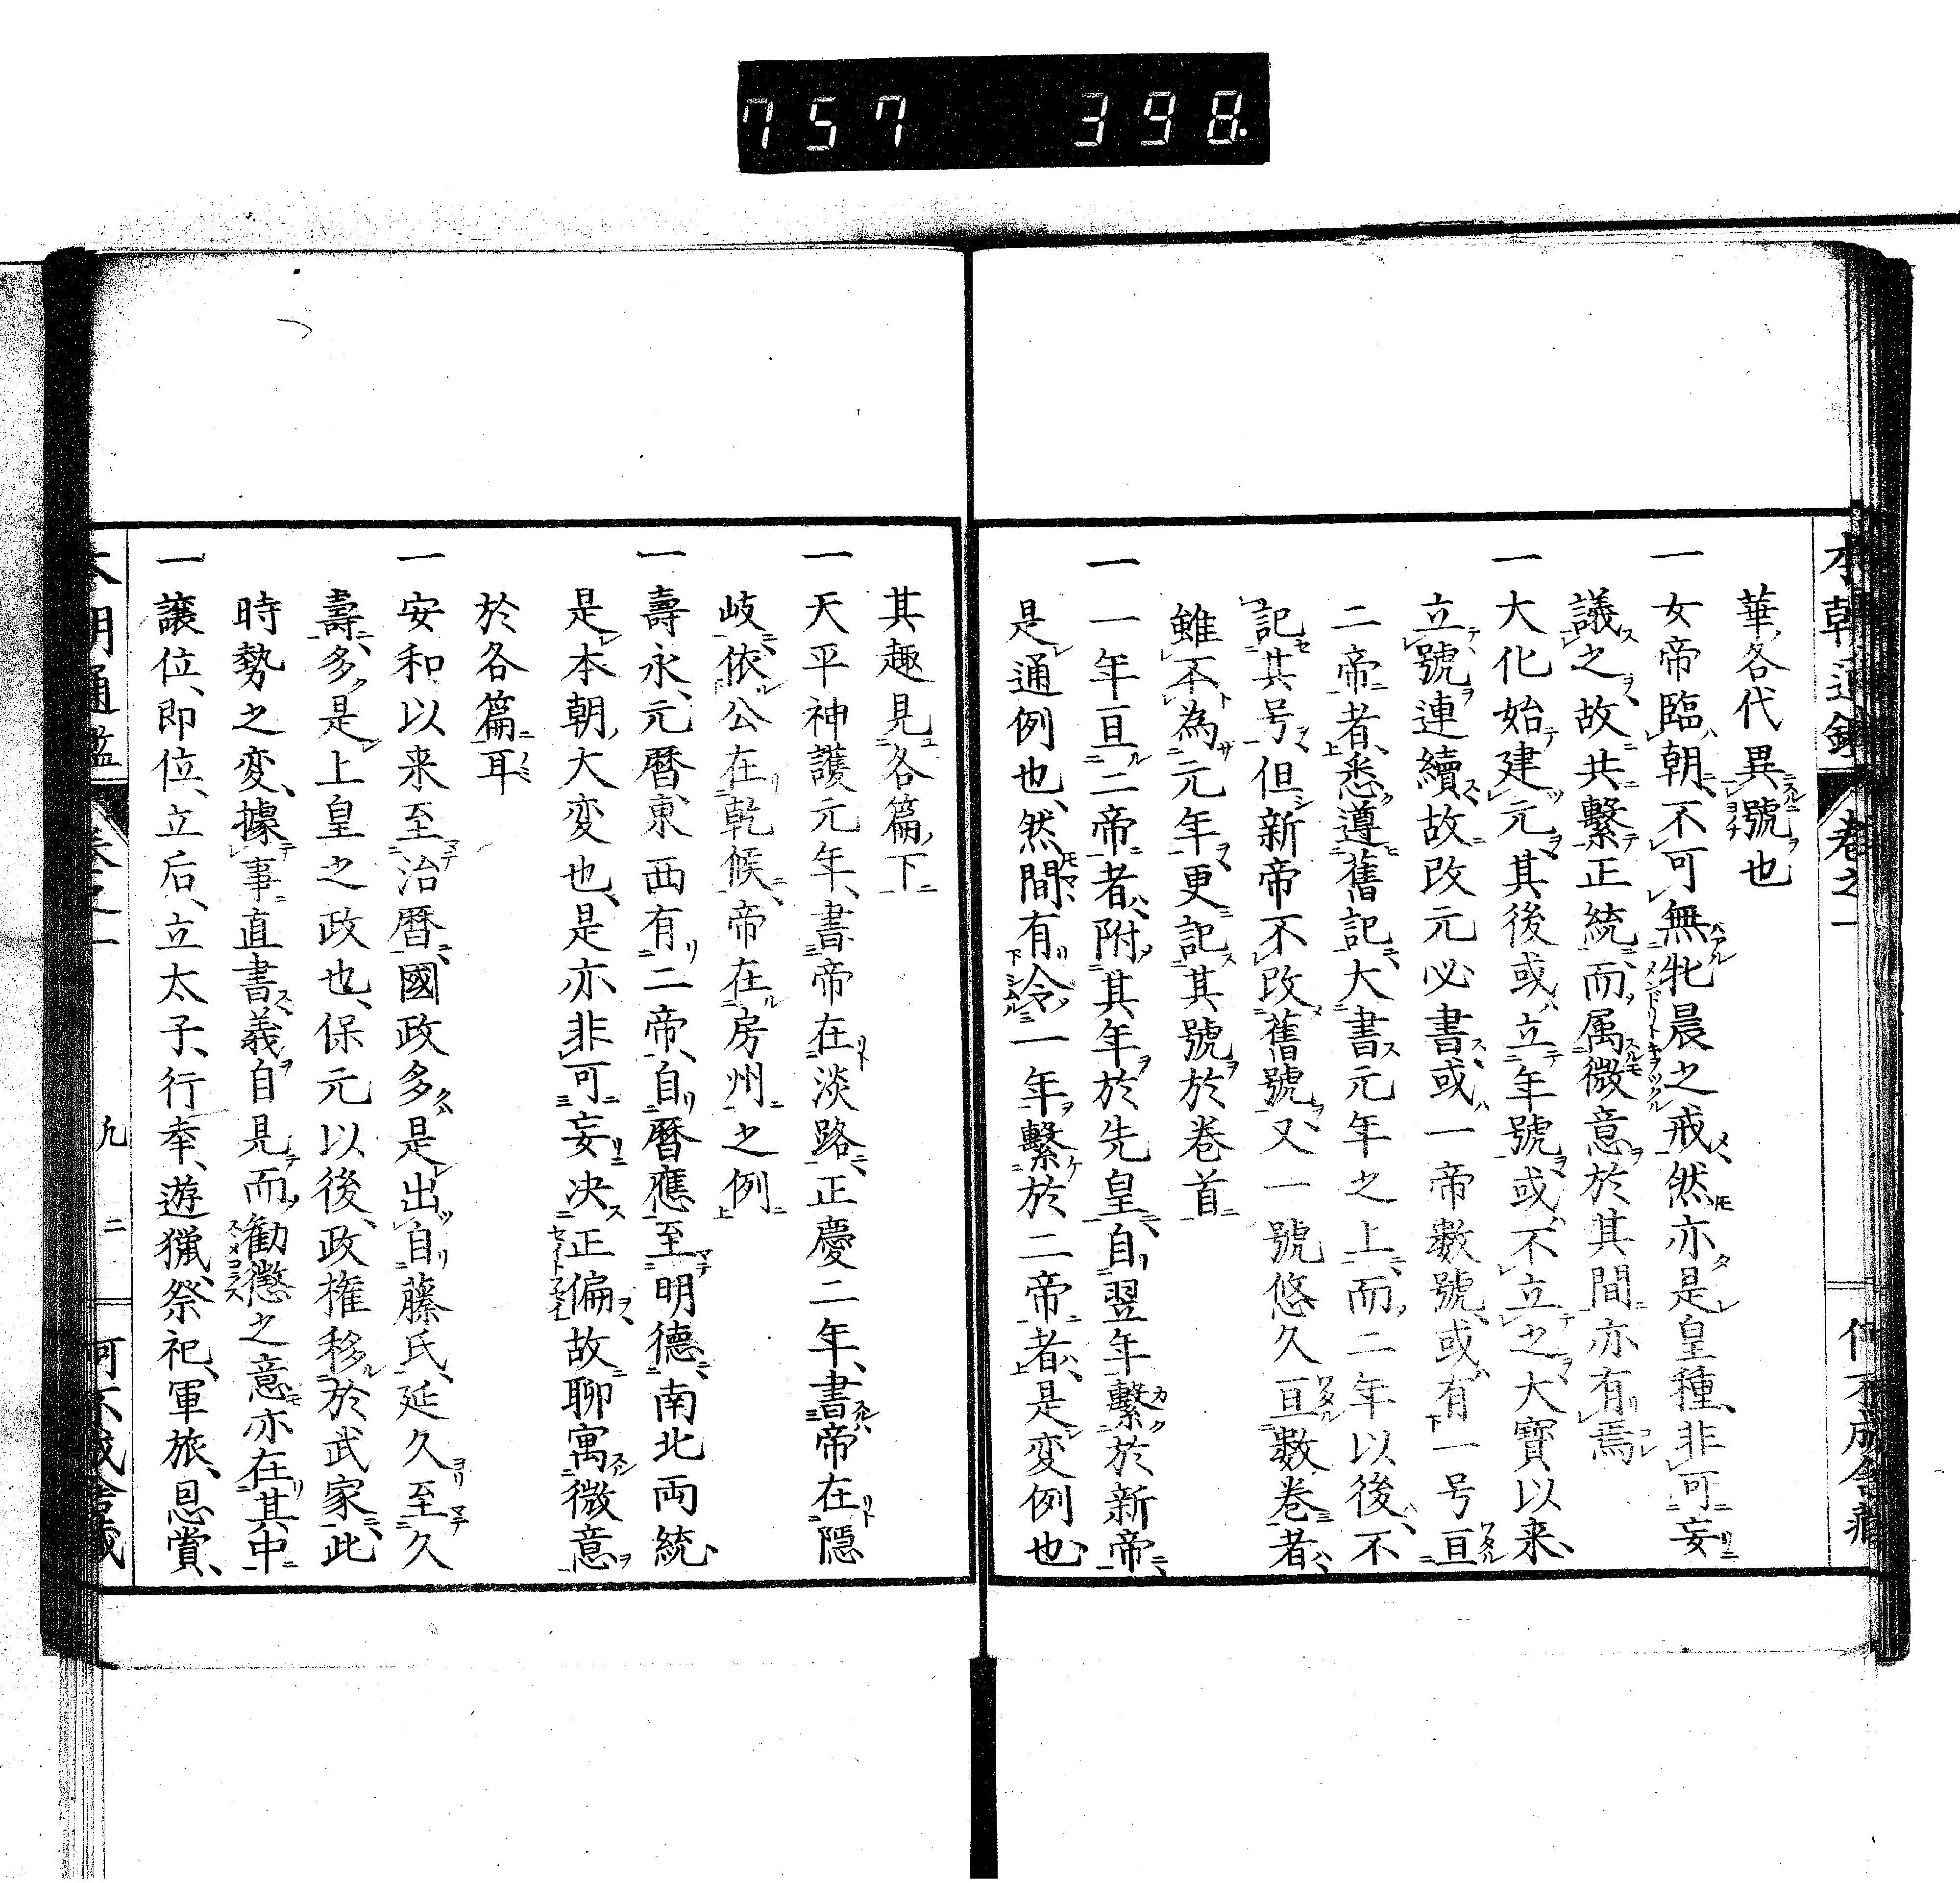 757 398.
本朝通鑑 卷之一
華各代異號也
一女帝臨朝不可無牝晨之戒然亦是皇種非可妄
議之故共繫正統而属微意於其間亦有焉
一大化始建元其後或立年號或不立之大寶以来
立號連續故改元必書或一帝數號或有一号亘
二帝者悉遵舊記大書元年之上而二年以後不
記其号但新帝不改舊號又一號悠久亘數卷者
雖不為元年更記其號於卷首
一一年亘二帝者附其年於先皇自翌年繫於新帝
是通例也然間有令一年繫於二帝者是変例也
其趣見各篇下
一天平神護元年書帝在淡路正慶二年書帝在隠
岐依公在乾候帝在房州之例
一壽永元暦東西有二帝自暦應至明德南北両統
是本朝大変也是亦非可妄决正偏故聊寓微意
於各篇耳
一安和以来至治暦國政多是出自藤氏延久至久
壽多是上皇之政也保元以後政権移於武家此
時勢之変據事直書義自見而勸懲之意亦在其中
一譲位即位立后立太子行幸遊獵祭祀軍旅恩賞
本朝通鑑 卷之一 九 二